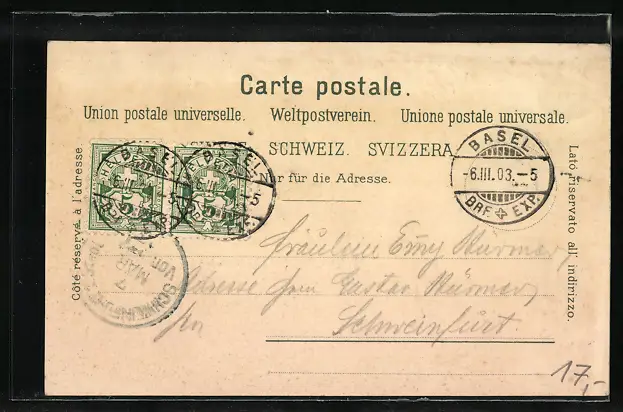 Carte postale.
Union postale universelle. Weltpostverein. Unione postale universale.
SCHWEIZ. SVIZZERA
Nur für die Adresse.
Côté réservé à l'adresse.
Lato riservato all' indirizzo.
BASEL
-6.III.03.-5
BRF. EXP.
BASEL
BASEL
SCHWEINFURT
7
MAR
Fräulein Emy Stürmer
Adresse Gustav Stürmer
Schweinfurt
17,-